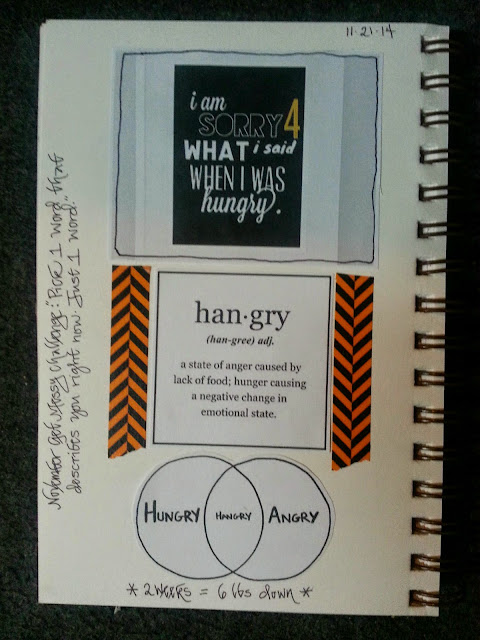 11·21·14
i am
SORRY 4
WHAT i said
WHEN I WAS
hungry.
han·gry
(han-gree) adj.
a state of anger caused by
lack of food; hunger causing
a negative change in
emotional state.
HUNGRY HANGRY ANGRY
* 2 weeks = 6 lbs down *
November Get Messy Challenge: "Pick 1 word that
describes you right now. Just 1 word."